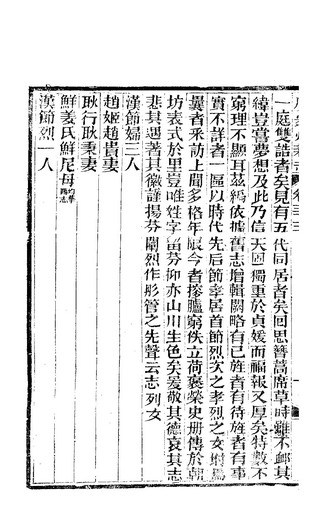 一庭雙誥者矣見有五代同居者矣回思簪蒿席草時雖不卹其
緯豈嘗夢想及此乃信天回獨重於貞媛而福報又厚矣特數不
窮理不顯耳茲編依據舊志增輯闕略有已旌者有待旌者有事
實不詳者一區以時代先后節孝居首節烈次之孝烈之女附焉
曩者釆訪上聞多格年辰今者搜臚窮佚立荷褒榮史册傳於朝
坊表式於里豈唯姓字留芬抑亦山川生色矣爰敬其德哀其志
悲其遇著其徽謹揚芬闡烈作彤管之先聲云志列女
漢節婦三人
趙姬趙貴妻
耿行耿秉妻
鮮姜氏鮮尼母
漢節烈一人